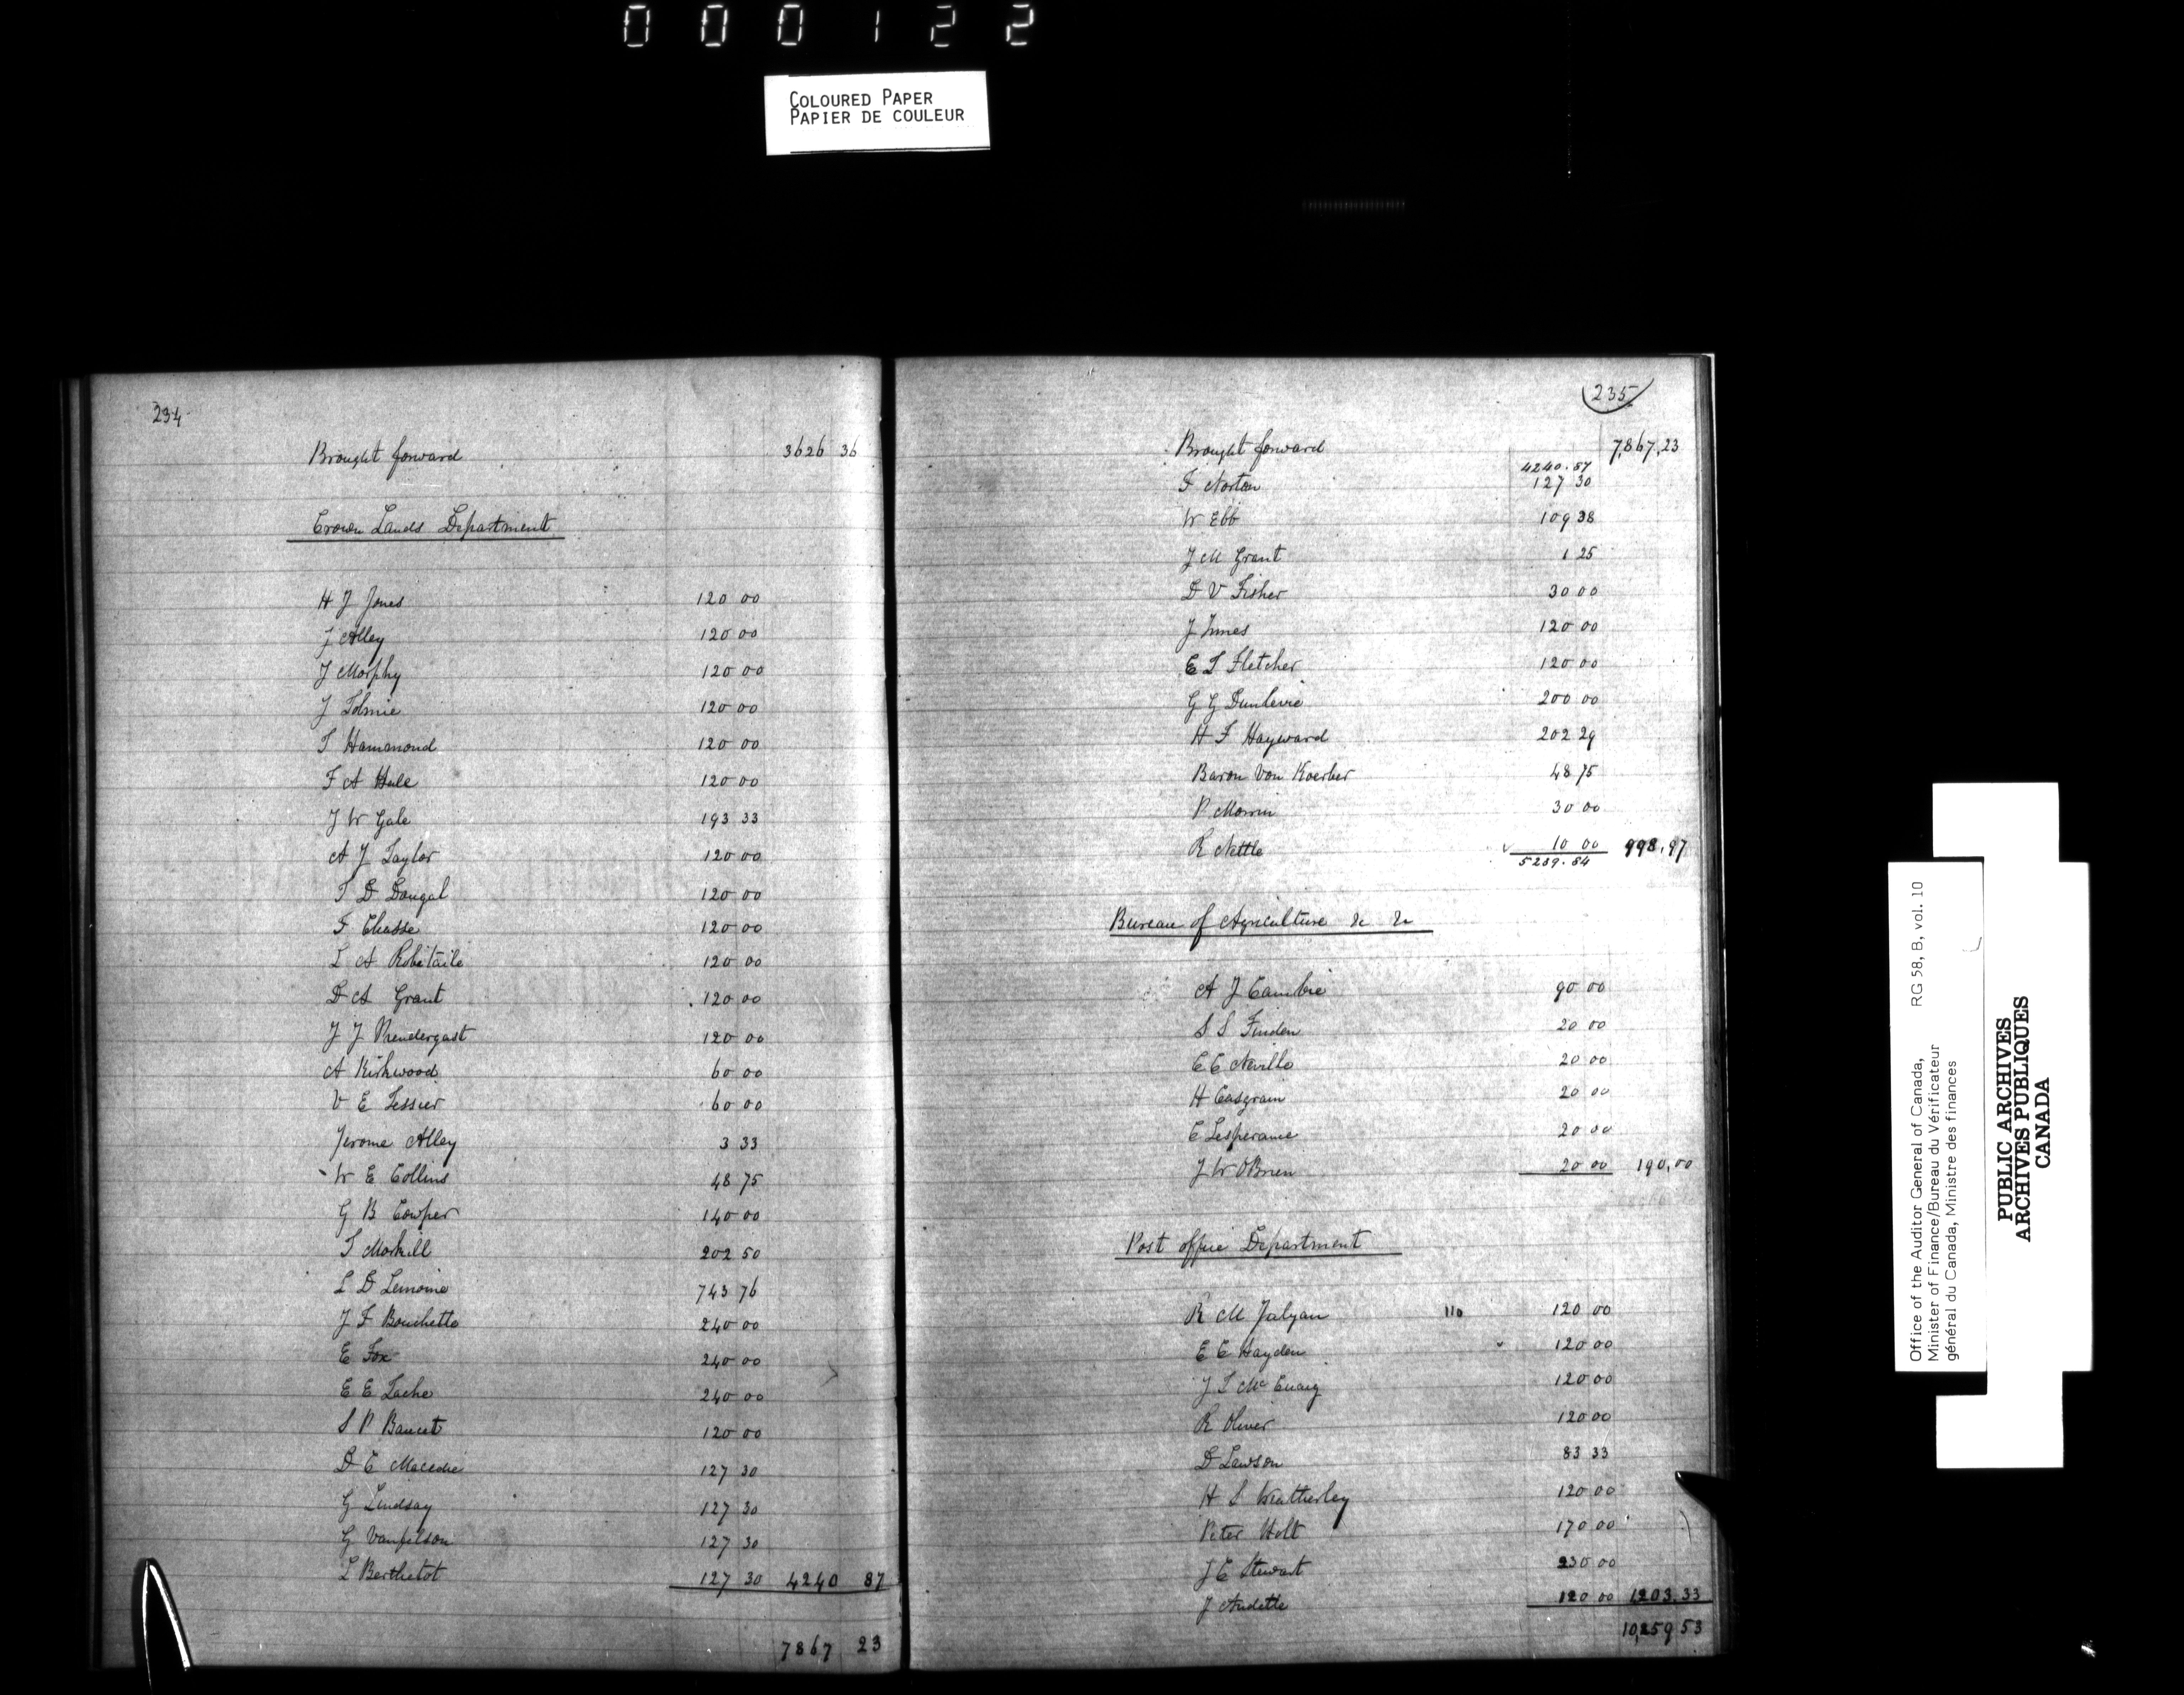 000122
COLOURED PAPER
PAPIER DE COULEUR
234
Brought forward 3626 36
Crown Lands Department
H J Jones 120 00
J Alley 120 00
J Morphy 120 00
J Tolmie 120 00
T Hammond 120 00
F A Hale 120 00
J W Gale 193 33
A J Taylor 120 00
T D Dougal 120 00
F Chasse 120 00
L A Robitaile 120 00
D A Grant 120 00
J J Prendergast 120 00
A Kirkwood 60 00
V E Tessier 60 00
Jerome Alley 3 33
W E Collins 48 75
G B Cowper 140 00
T Morkill 202 50
L D Lemoine 743 76
J F Bouchette 240 00
E Fox 240 00
E E Tache 240 00
S P Baucet 120 00
D C Macedie 127 30
G Lindsay 127 30
G Vanfelson 127 30
L Berthelot 127 30 4240 87
7867 23
235
Brought forward 7,867,23
4240.87
F Norton 127 30
W Ebb 109 38
J M Grant 1 25
D V Fisher 30 00
J Innes 120 00
E T Fletcher 120 00
G G Dunlevie 200 00
H F Hayward 202 29
Baron Von Koerber 48 75
P Morin 30 00
R Nettle 10 00 998,97
5239.84
Bureau of Agriculture &c &c
A J Cambie 90 00
S S Finden 20 00
E C Neville 20 00
H Casgrain 20 00
E Lesperance 20 00
J W OBrien 20 00 190,00
Post office Department
R M 110 120 00
E C Hayden 120 00
J S McCuaig 120 00
R Oliver 120 00
D Lawson 83 33
H S Weatherley 120 00
Peter Holt 170 00
J C Stewart 230 00
J Audette 120 00 1203.33
10,259 53
Office of the Auditor General of Canada, RG 58, B, vol. 10
Minister of Finance/Bureau du Vérificateur
général du Canada, Ministre des finances
PUBLIC ARCHIVES
ARCHIVES PUBLIQUES
CANADA